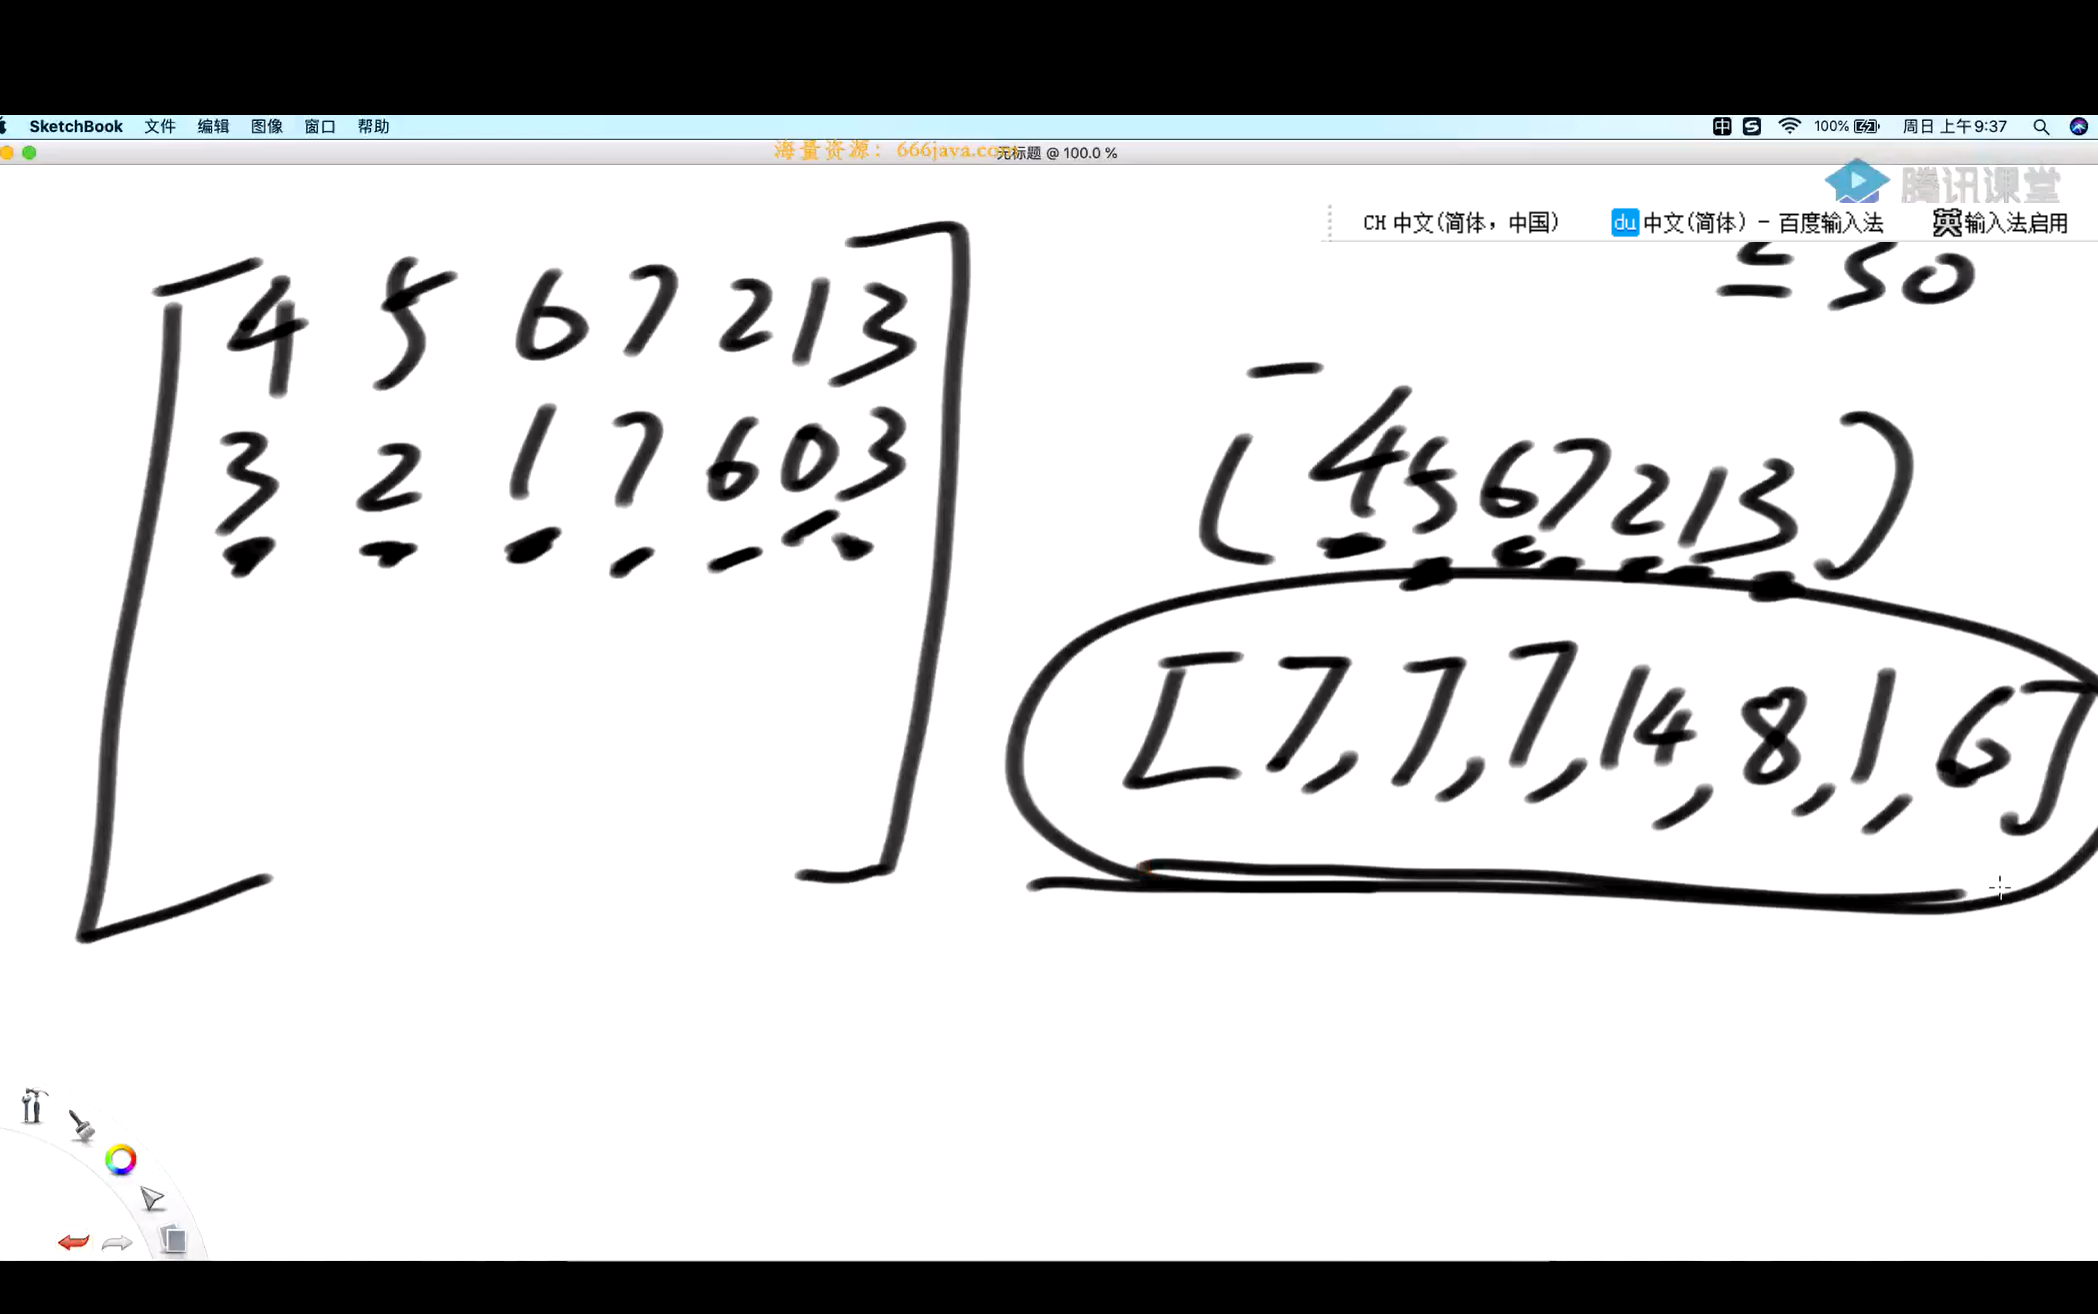 SketchBook 文件 编辑 图像 窗口 帮助 中 S 100% 周日 上午9:37
海量资源：666java.com
无标题 @ 100.0 %
腾讯课堂
CH 中文(简体，中国) du 中文(简体) - 百度输入法 英 输入法启用
= 50
4 5 6 7 2 1 3
3 2 1 7 6 0 3
(4567213)
[7,7,7,14,8,1,6]